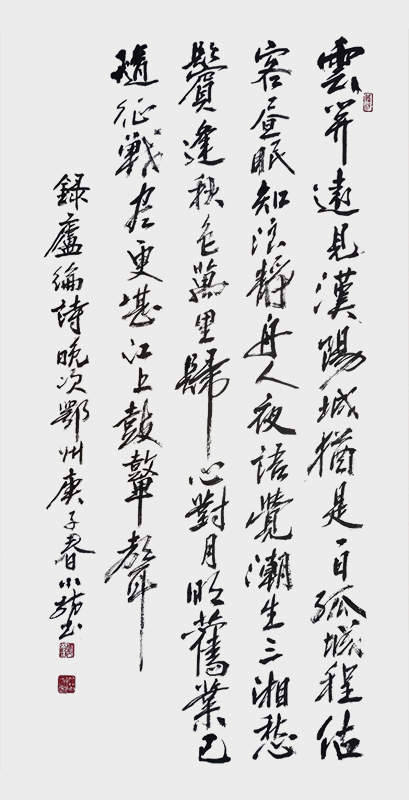 雲開遠見漢陽城猶是一日孤城程估
客晝眠知浪靜舟人夜語覺潮生三湘愁
鬢逢秋色萬里歸心對月明舊業已
隨征戰盡更堪江上鼓鼙聲
錄盧綸詩晚次鄂州庚子春小書